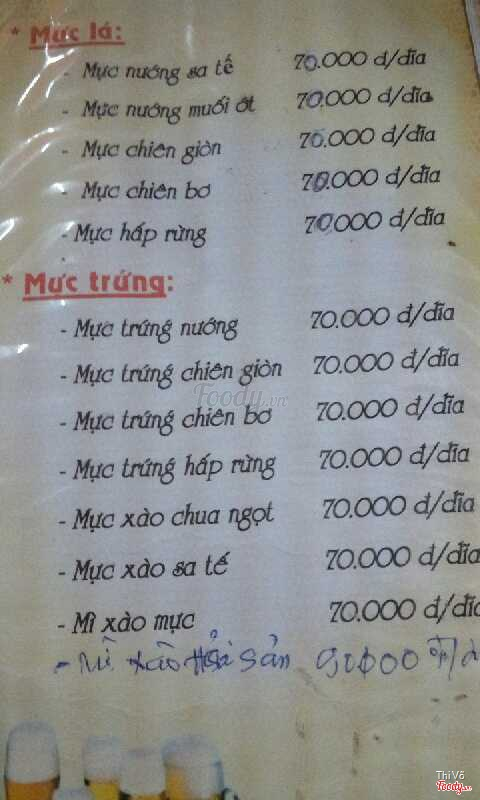 * Mực lá:
- Mực nướng sa tế 70.000 đ/dĩa
- Mực nướng muối ớt 70.000 đ/dĩa
- Mực chiên giòn 70.000 đ/dĩa
- Mực chiên bơ 70.000 đ/dĩa
- Mực hấp rừng 70.000 đ/dĩa
* Mực trứng:
- Mực trứng nướng 70.000 đ/dĩa
- Mực trứng chiên giòn 70.000 đ/dĩa
Foody.vn
- Mực trứng chiên bơ 70.000 đ/dĩa
- Mực trứng hấp rừng 70.000 đ/dĩa
- Mực xào chua ngọt 70.000 đ/dĩa
- Mực xào sa tế 70.000 đ/dĩa
- Mì xào mực 70.000 đ/dĩa
- Mì xào Hải sản
Thi Võ
Foody.vn